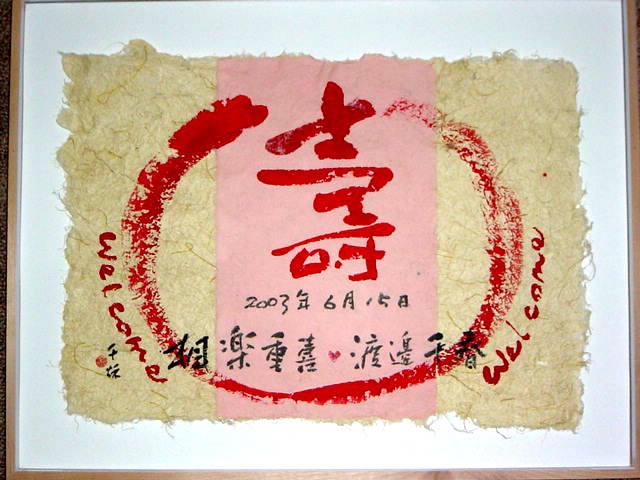 壽
2003年6月15日
相楽重喜♥渡邉千春
Welcome
Welcome